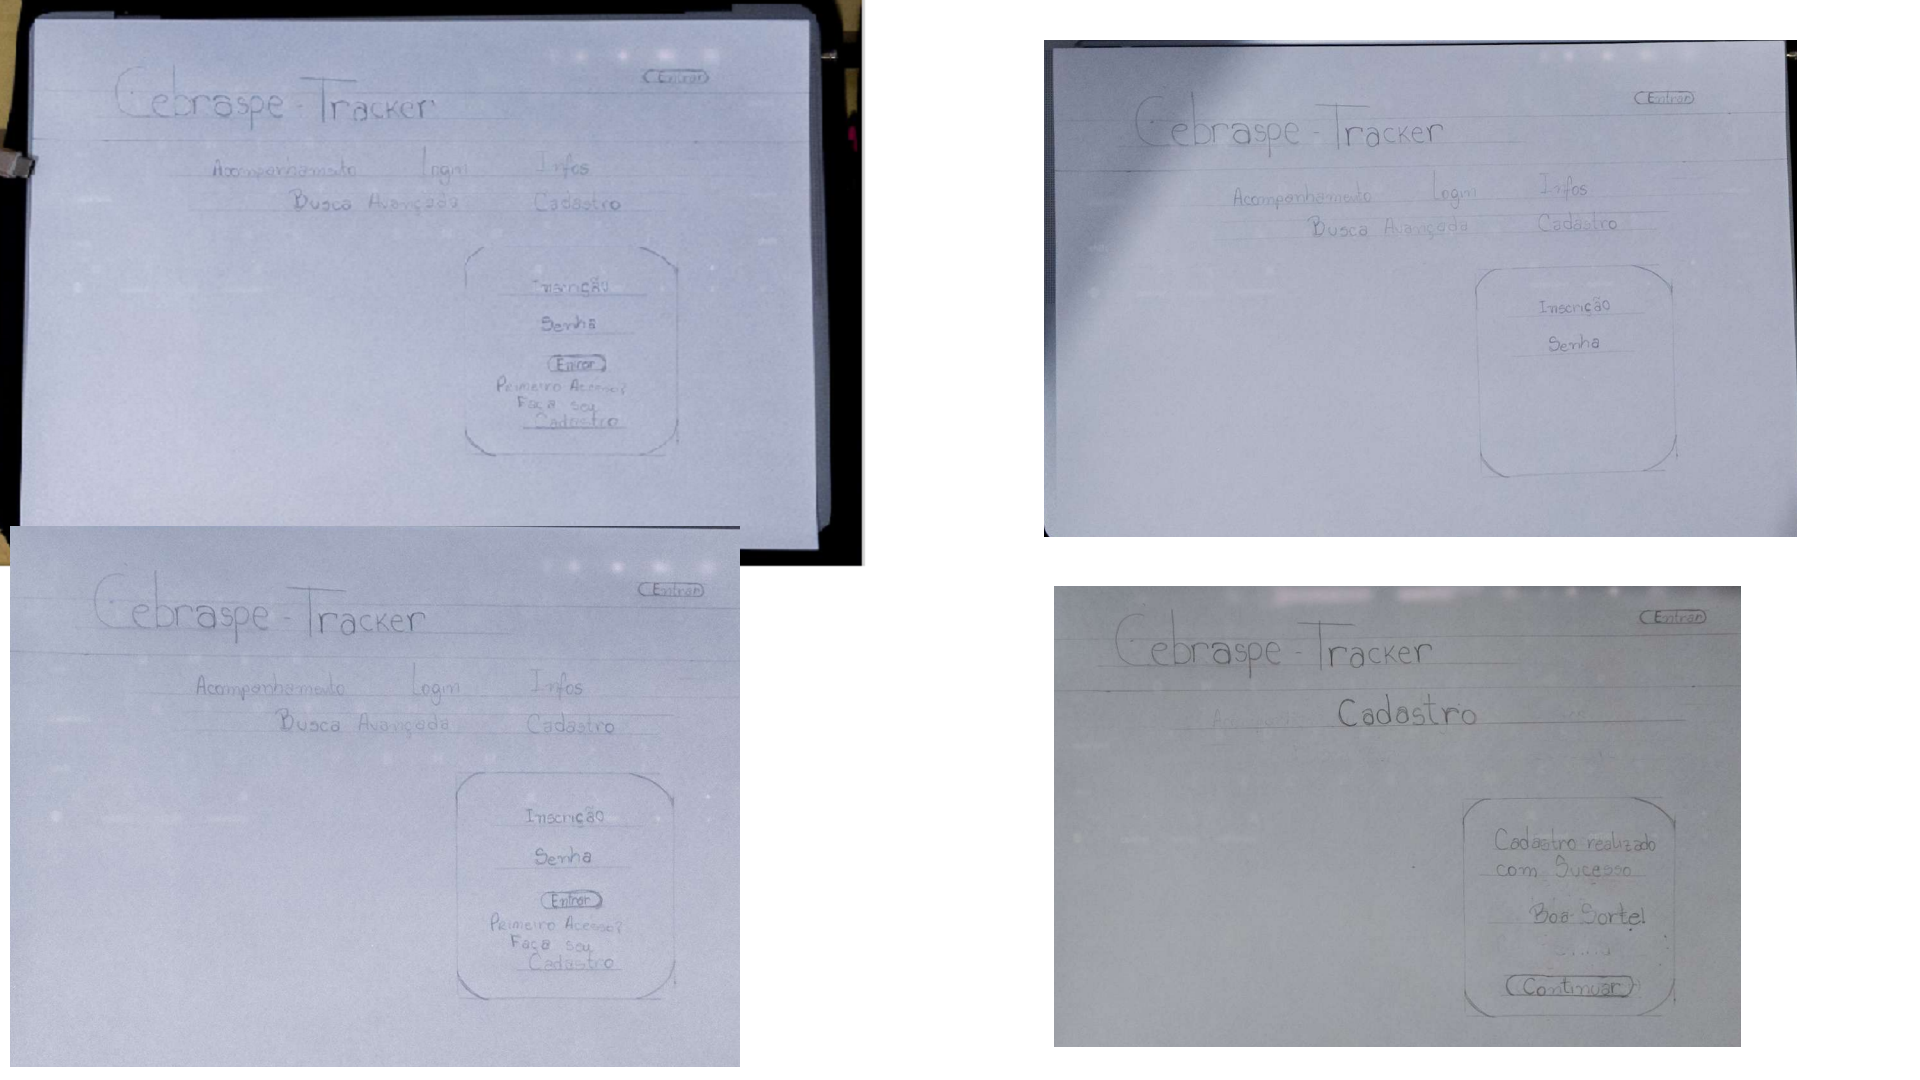 Cebraspe - Tracker
Entrar
Acompanhamento Login Infos
Busca Avançada Cadastro
Inscrição
Senha
Entrar
Primeiro Acesso?
Faça seu
Cadastro
Cebraspe - Tracker
Entrar
Acompanhamento Login Infos
Busca Avançada Cadastro
Inscrição
Senha
Cebraspe - Tracker
Entrar
Acompanhamento Login Infos
Busca Avançada Cadastro
Inscrição
Senha
Entrar
Primeiro Acesso?
Faça seu
Cadastro
Cebraspe - Tracker
Entrar
Cadastro
Cadastro realizado
com Sucesso
Boa Sorte!
Continuar